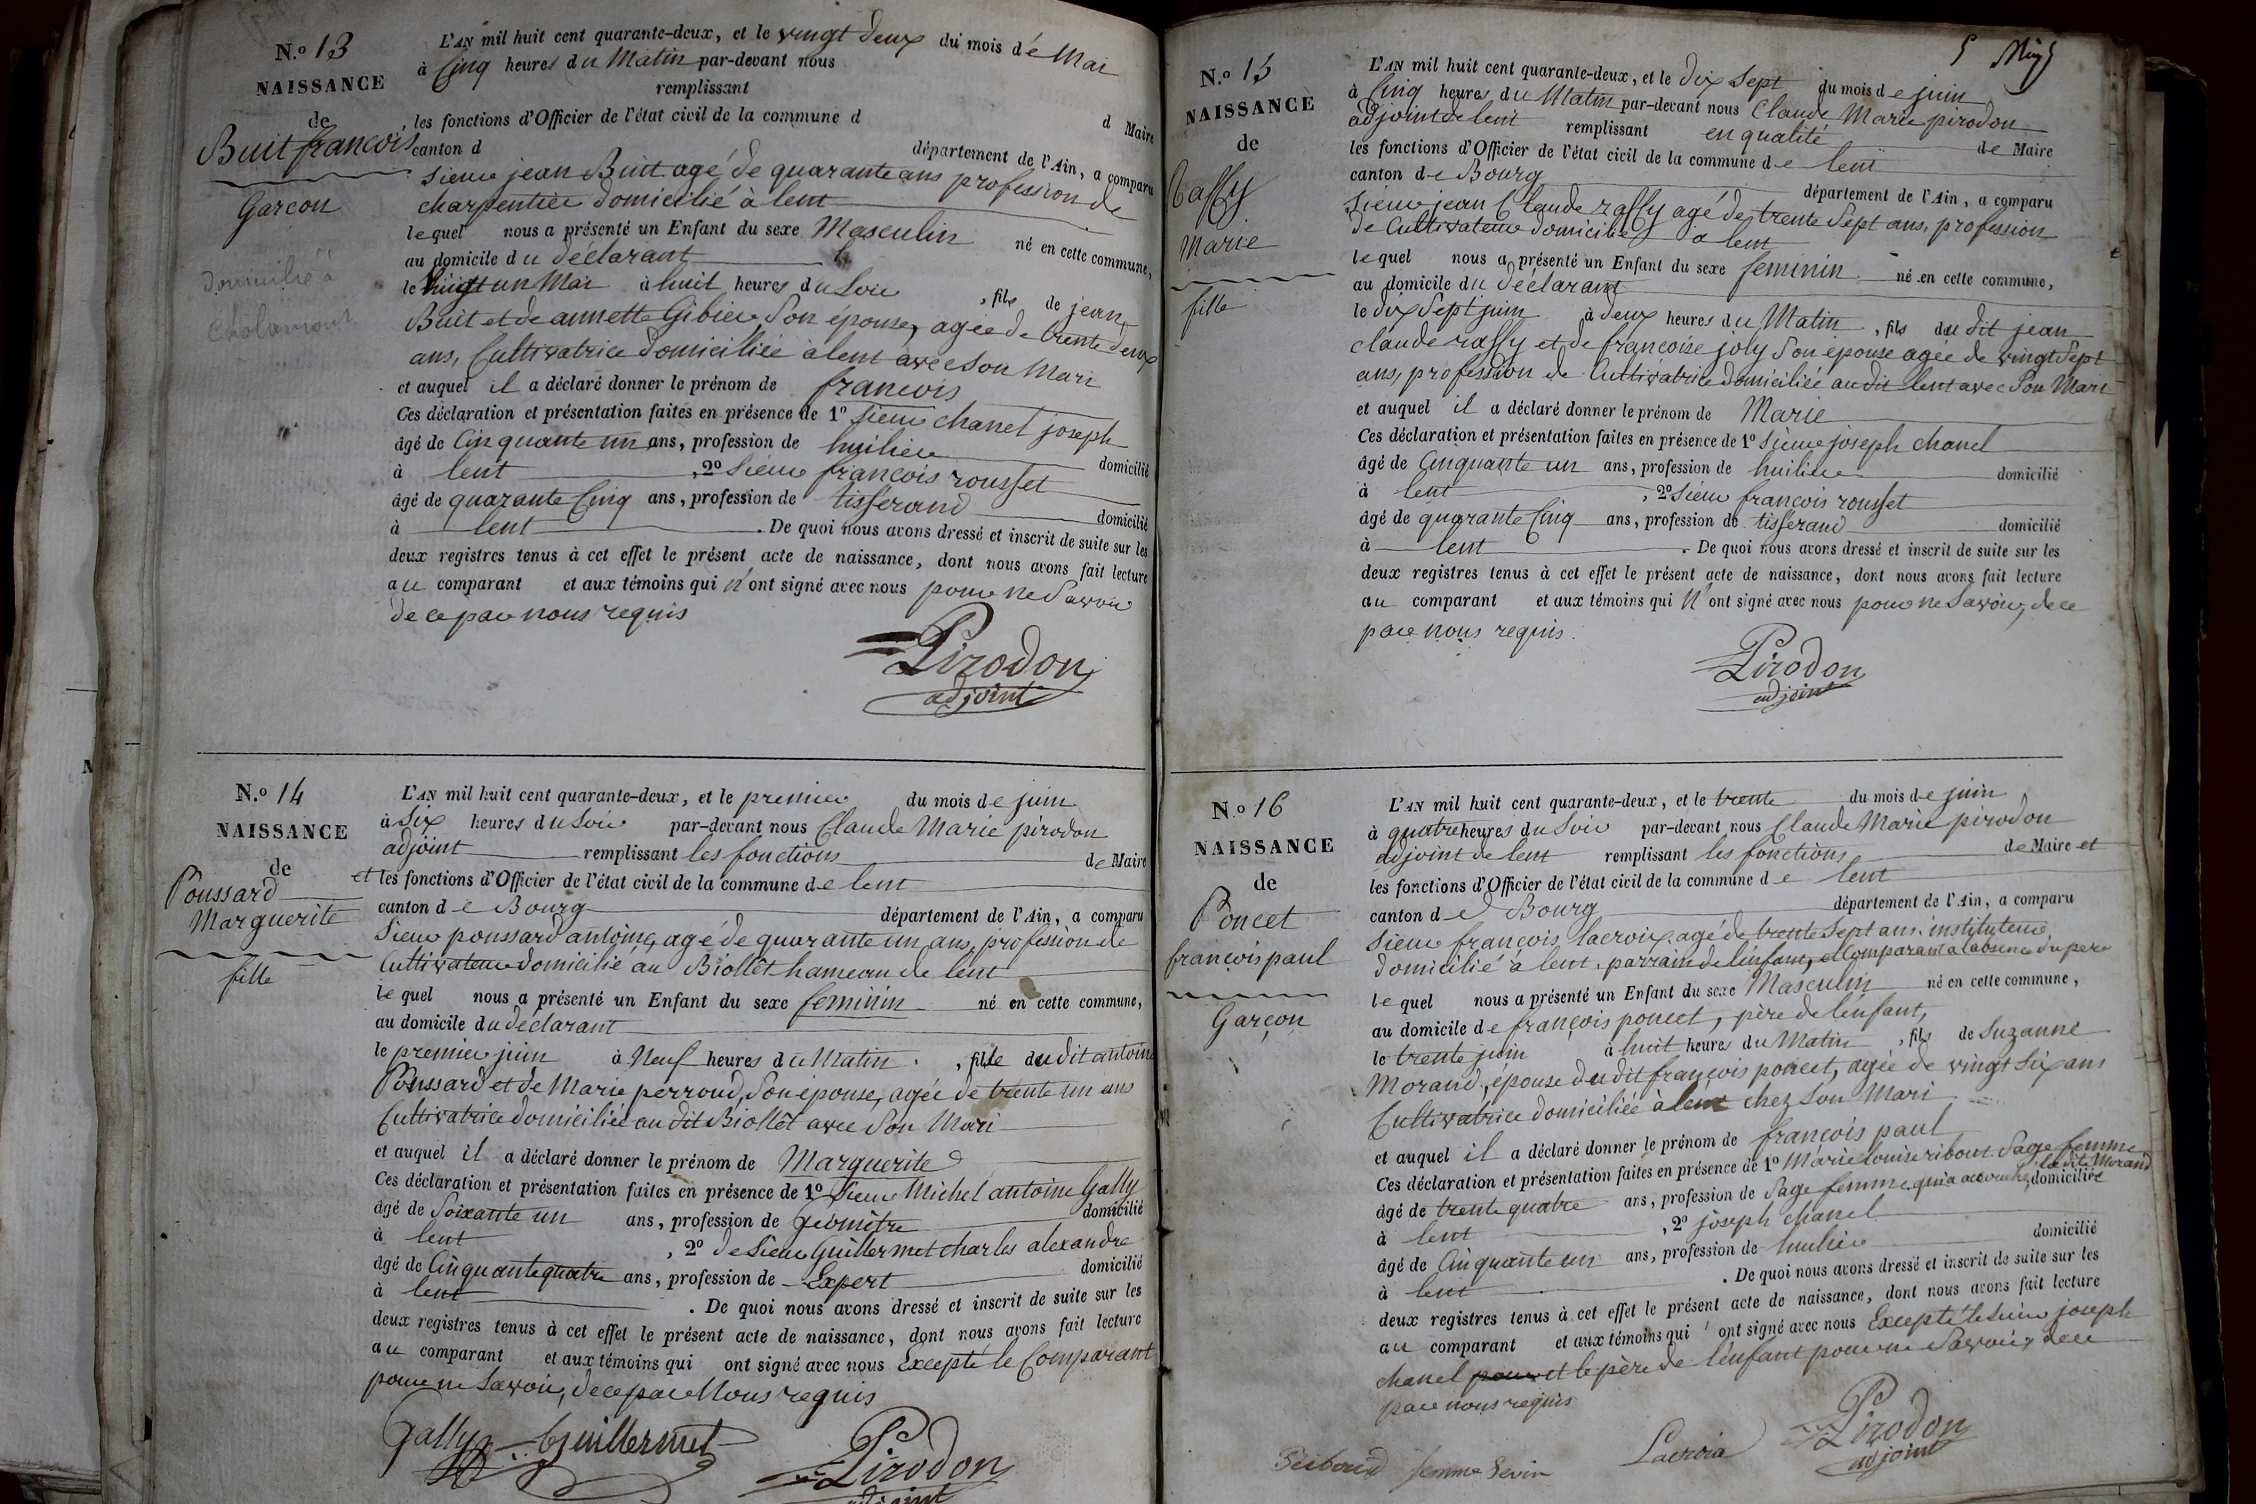 N.o 13
NAISSANCE
de
Buit françois
Garçon
Domicilié à
Chalamont
L'AN mil huit cent quarante-deux, et le vingt deux du mois de Mai
à Cinq heures du Matin par-devant nous
remplissant
d Maire
les fonctions d'Officier de l'état civil de la commune d
canton d département de l'Ain, a comparu
Sieur jean Buit agé de quarante ans profession de
charpentier domicilié à lent
lequel nous a présenté un Enfant du sexe Masculin né en cette commune,
au domicile du déclarant
le vingt un Mai à huit heures du Soir , fils de jean
Buit et de annette Gibier Son épouse, agée de trente deux
ans, Cultivatrice domiciliée à lent avec Son Mari
et auquel il a déclaré donner le prénom de françois
Ces déclaration et présentation faites en présence de 1o Sieur chanel joseph
âgé de Cinquante un ans, profession de huilier domicilié
à lent , 2o Sieur françois rousset
âgé de quarante Cinq ans, profession de tisserand domicilié
à lent . De quoi nous avons dressé et inscrit de suite sur les
deux registres tenus à cet effet le présent acte de naissance, dont nous avons fait lecture
au comparant et aux témoins qui n'ont signé avec nous pour ne Savoir
de ce par nous requis
Pirodon
adjoint
N.o 14
NAISSANCE
de
Poussard
Marguerite
fille
L'AN mil huit cent quarante-deux, et le premier du mois de juin
à Six heures du Soir par-devant nous Claude Marie pirodon
adjoint remplissant les fonctions de Maire
et les fonctions d'Officier de l'état civil de la commune de lent
canton de Bourg département de l'Ain, a comparu
Sieur poussard antoine, agé de quarante un ans, profession de
Cultivateur domicilié au Biollêt hameau de lent
lequel nous a présenté un Enfant du sexe feminin né en cette commune,
au domicile du déclarant
le premier juin à Neuf heures du Matin , fille du dit antoine
Poussard et de Marie perroud, Son épouse, agée de trente un ans
Cultivatrice domiciliée au dit Biollêt avec Son Mari
et auquel il a déclaré donner le prénom de Marguerite
Ces déclaration et présentation faites en présence de 1o Sieur Michel antoine Gally
âgé de Soixante un ans, profession de Géomètre domicilié
à lent , 2o de Sieur Guillermet charles alexandre
âgé de Cinquante quatre ans, profession de Expert domicilié
à lent . De quoi nous avons dressé et inscrit de suite sur les
deux registres tenus à cet effet le présent acte de naissance, dont nous avons fait lecture
au comparant et aux témoins qui ont signé avec nous Excepté le Comparant
pour ne Savoir, de ce par Nous requis
Gally Guillermet Pirodon
adjoint
5
N.o 15
NAISSANCE
de
raffy
Marie
fille
L'AN mil huit cent quarante-deux, et le dix Sept du mois de juin
à Cinq heures du Matin par-devant nous Claude Marie pirodon
adjoint de lent remplissant en qualité de Maire
les fonctions d'Officier de l'état civil de la commune de lent
canton de Bourg département de l'Ain, a comparu
Sieur jean Claude raffy agé de trente Sept ans, profession
de Cultivateur domicilié à lent
lequel nous a présenté un Enfant du sexe feminin né en cette commune,
au domicile du déclarant
le dix Sept juin à deux heures du Matin , fils du dit jean
claude raffy et de françoise joly Son épouse agée de vingt Sept
ans, profession de Cultivatrice domiciliée au dit lent avec Son Mari
et auquel il a déclaré donner le prénom de Marie
Ces déclaration et présentation faites en présence de 1o Sieur joseph chanel
âgé de Cinquante un ans, profession de huilier domicilié
à lent , 2o Sieur françois rousset
âgé de quarante Cinq ans, profession de tisserand domicilié
à lent . De quoi nous avons dressé et inscrit de suite sur les
deux registres tenus à cet effet le présent acte de naissance, dont nous avons fait lecture
au comparant et aux témoins qui N'ont signé avec nous pour ne Savoir, de ce
par nous requis.
Pirodon
adjoint
N.o 16
NAISSANCE
de
Poncet
françois paul
Garçon
L'AN mil huit cent quarante-deux, et le trente du mois de juin
à quatre heures du Soir par-devant nous Claude Marie pirodon
adjoint de lent remplissant les fonctions de Maire et
les fonctions d'Officier de l'état civil de la commune de lent
canton de Bourg département de l'Ain, a comparu
Sieur françois lacroix, agé de trente Sept ans, instituteur,
domicilié à lent, parrain de l'enfant, et Comparant à l'absence du père
lequel nous a présenté un Enfant du sexe Masculin né en cette commune,
au domicile de françois poncet, père de l'enfant,
le trente juin à huit heures du Matin , fils de Suzanne
Morand, épouse du dit françois poncet, agée de vingt Six ans
Cultivatrice domiciliée à lent chez Son Mari
et auquel il a déclaré donner le prénom de françois paul
Ces déclaration et présentation faites en présence de 1o Marie louise ribout Sage femme
âgé de trente quatre ans, profession de Sage femme qui a accouché la dite Morand, domiciliée
à lent , 2o joseph chanel
âgé de Cinquante un ans, profession de huilier domicilié
à lent . De quoi nous avons dressé et inscrit de suite sur les
deux registres tenus à cet effet le présent acte de naissance, dont nous avons fait lecture
au comparant et aux témoins qui ont signé avec nous Excepté le Sieur joseph
chanel pour et le père de l'enfant pour ne Savoir, de ce
par nous requis
femme Sevin Lacroix Pirodon
adjoint